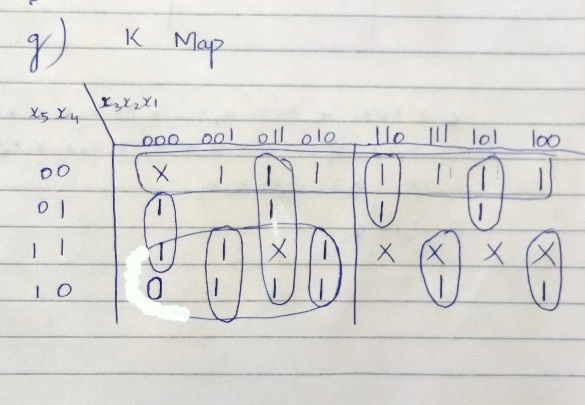 g) K Map
x₅ x₄ x₃x₂x₁
000 001 011 010 110 111 101 100
00 X 1 1 1 1 1 1 1
01 1 1 1 1
11 1 1 X 1 X X X X
10 0 1 1 1 1 1